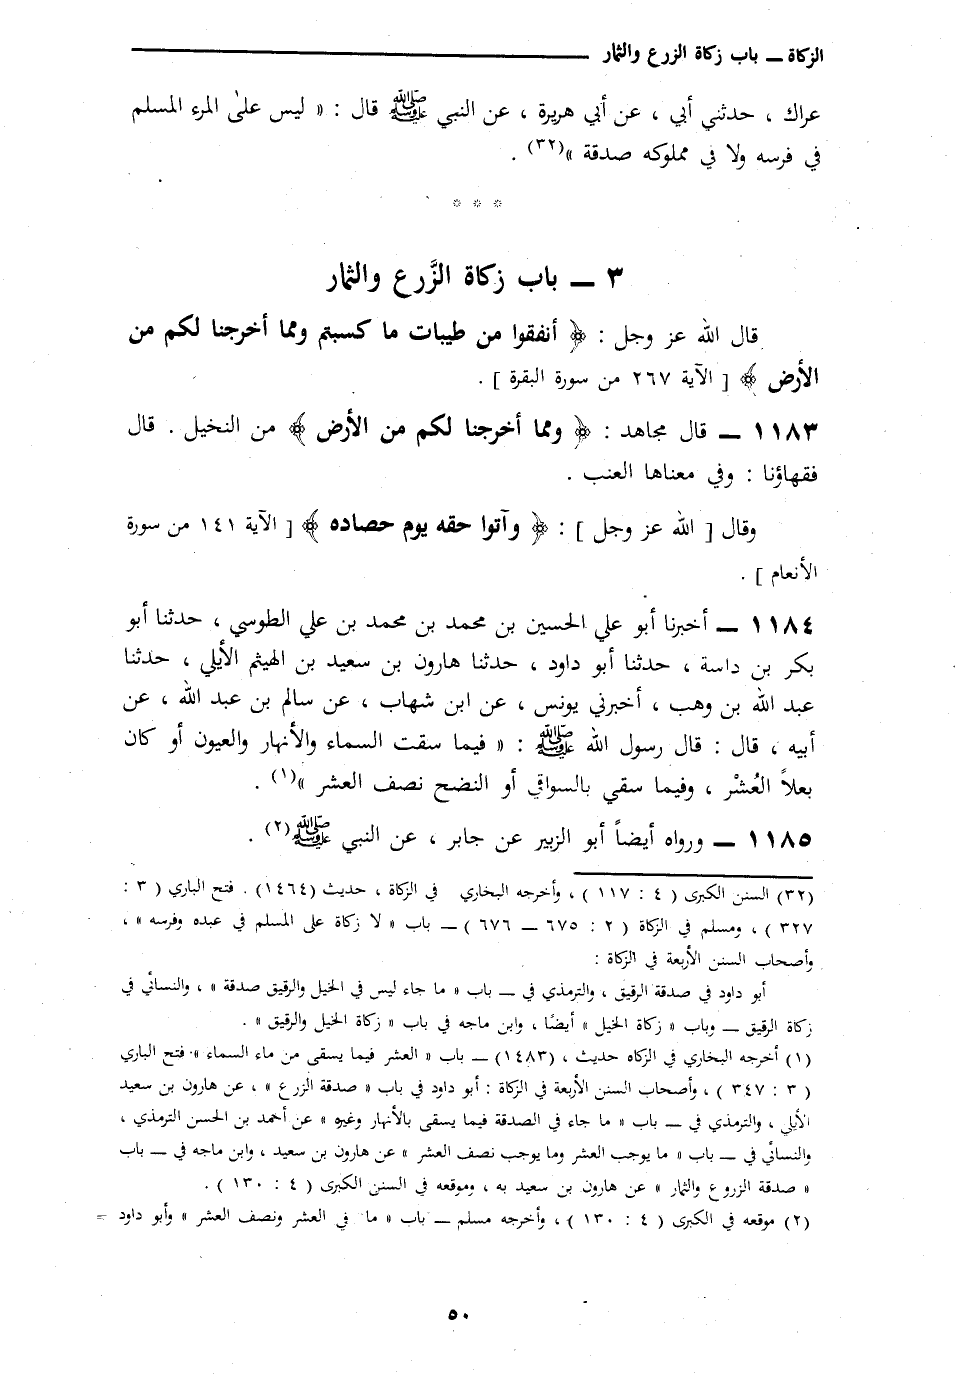 الزكاة ـــ باب زكاة الزرع والثمار
عراك ، حدثني أبي ، عن أبي هريرة ، عن النبي ﷺ قال : « ليس علىٰ المرء المسلم
في فرسه ولا في مملوكه صدقة »(٣٢) .
* * *
٣ ـــ باب زكاة الزَّرع والثمار
قال الله عز وجل : ﴿ أنفقوا من طيبات ما كسبتم ومما أخرجنا لكم من
الأرض ﴾ [ الآية ٢٦٧ من سورة البقرة ] .
١١٨٣ ـــ قال مجاهد : ﴿ ومما أخرجنا لكم من الأرض ﴾ من النخيل . قال
فقهاؤنا : وفي معناها العنب .
وقال [ الله عز وجل ] : ﴿ وآتوا حقه يوم حصاده ﴾ [ الآية ١٤١ من سورة
الأنعام ] .
١١٨٤ ـــ أخبرنا أبو علي الحسين بن محمد بن محمد بن علي الطوسي ، حدثنا أبو
بكر بن داسة ، حدثنا أبو داود ، حدثنا هارون بن سعيد بن الهيثم الأيلي ، حدثنا
عبد الله بن وهب ، أخبرني يونس ، عن ابن شهاب ، عن سالم بن عبد الله ، عن
أبيه ، قال : قال رسول الله ﷺ : « فيما سقت السماء والأنهار والعيون أو كان
بعلاً العُشْر ، وفيما سقي بالسواقي أو النضح نصف العشر »(١) .
١١٨٥ ـــ ورواه أيضاً أبو الزبير عن جابر ، عن النبي ﷺ(٢) .
(٣٢) السنن الكبرى ( ٤ : ١١٧ ) ، وأخرجه البخاري في الزكاة ، حديث (١٤٦٤) . فتح الباري ( ٣ :
٣٢٧ ) ، ومسلم في الزكاة ( ٢ : ٦٧٥ ـــ ٦٧٦ ) ـــ باب « لا زكاة على المسلم في عبده وفرسه » ،
وأصحاب السنن الأربعة في الزكاة :
أبو داود في صدقة الرقيق ، والترمذي في ـــ باب « ما جاء ليس في الخيل والرقيق صدقة » ، والنسائي في
زكاة الرقيق ـــ وباب « زكاة الخيل » أيضًا ، وابن ماجه في باب « زكاة الخيل والرقيق » .
(١) أخرجه البخاري في الزكاه حديث ، (١٤٨٣) ـــ باب « العشر فيما يسقى من ماء السماء » فتح الباري
( ٣ : ٣٤٧ ) ، وأصحاب السنن الأربعة في الزكاة : أبو داود في باب « صدقة الزرع » ، عن هارون بن سعيد
الأيلي ، والترمذي في ـــ باب « ما جاء في الصدقة فيما يسقى بالأنهار وغيره » عن أحمد بن الحسن الترمذي ،
والنسائي في ـــ باب « ما يوجب العشر وما يوجب نصف العشر » عن هارون بن سعيد ، وابن ماجه في ـــ باب
« صدقة الزروع والثمار » عن هارون بن سعيد به ، وموقعه في السنن الكبرى ( ٤ : ١٣٠ ) .
(٢) موقعه في الكبرى ( ٤ : ١٣٠ ) ، وأخرجه مسلم ـــ باب « ما في العشر ونصف العشر » وأبو داود =
٥٠